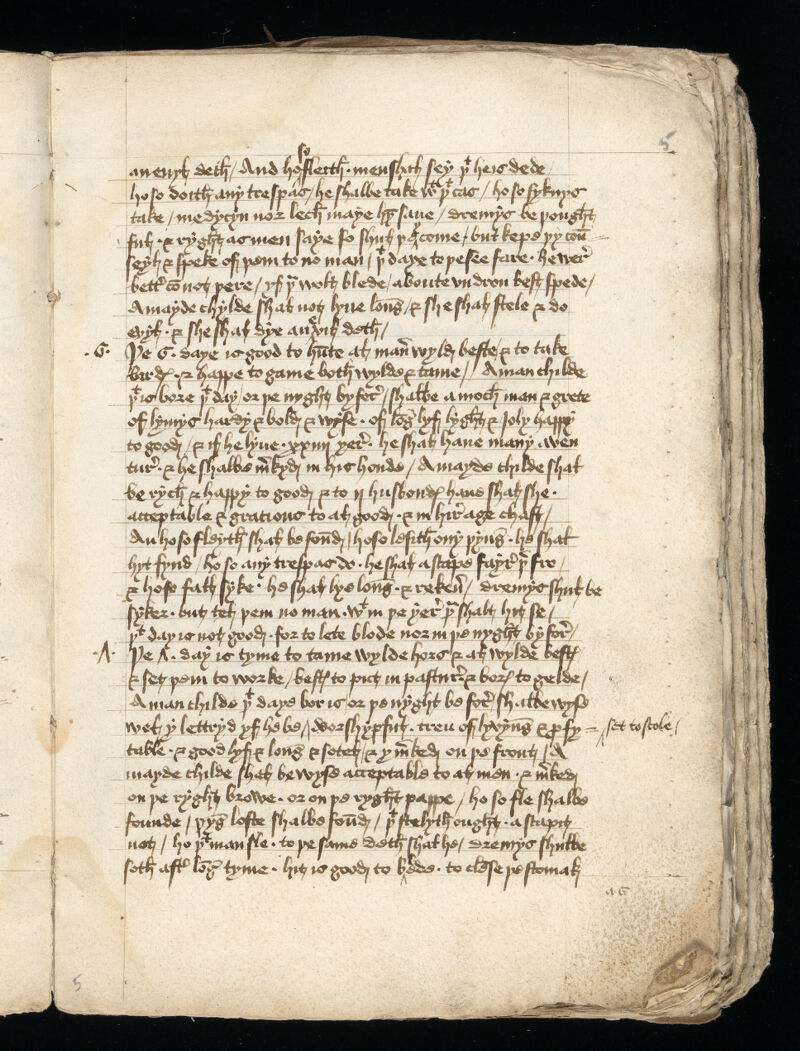 5
an euyƚƚ deth / And ho so fleeth · men shaƚƚ sey þt he is dede /
ho so doith any trespas / he shalbe take wt þt cas / ho so syknys
take / medycyn nor lech maye hȳ saue / dremys be þought
fuƚƚ · & ryght as men saye so shuƚƚ þei come / but kepe þy coū =
seyƚƚ & speke off þem to no man / þt daye to pese fare · he wer
bettr not þere / yf þu wolt blede / aboute vndron best spede /
A mayde chylde shaƚƚ not lyue long / & she shaƚƚ stele & do
euyƚƚ · & she shaƚƚ dye an euiƚƚ deth /
· 6 · Þe 6 · daye is good to hūte aƚƚ maner wyld beste & to take
birdes · & happe to game both wylde & tame / A man childe
þt is bore þt day / or þe nyght byfor / shalbe a moch man & grete
of lymys hardy & bold & wyse · off long lyff lyght & Joly happy
to good / & iff he lyue · xxiiij yer · he shaƚƚ haue many aven
tur · & he shalbe mrkyd in his honde / A mayde childe shaƚƚ
be rych & happy to good & to ij husbondes haue shaƚƚ she ·
acceptable & gratious to aƚƚ good · & in hir age chast /
An ho so fleyth shaƚƚ be found / ho so lesith ony þyng · he shaƚƚ
hyt fynd / ho so any trespas do · he shaƚƚ astape fayr þer fro /
& hoso falƚƚ syke · he shaƚƚ lye long · & rekeuer / dremys shuƚƚ be
syker · but teƚƚ þem no man · wt in þe yer þu shalt hit se /
þt day is not good · for to lete blode nor in þe nyght by for /
· A · Þe A · day is tyme to tame wylde hors & aƚƚ wylde best
& set þem to worke / best to put in pastur & bores to gelde /
A man childe þt daye bor is or þe nyght be for / shalbe wyse
weƚƚ y lettryd yf he be / worshypfuƚƚ · treu off lyvyng & profy = set to scole /
table · & good lyff & long & soteƚƚ & y mrked on þe front / A
mayde childe shaƚƚ be wyse acceptable to aƚƚ men · & mrked
on þe ryght browe · or on þe ryght pappe / ho so fle shalbe
founde / þyng loste shalbe found / þt stelyth ought · astapeƚƚ
not / ho þt man sle · to þe same deth shaƚƚ he / dremys shulbe
soth aftr long tyme · hit is good to blede · to clēse þe stomak
5